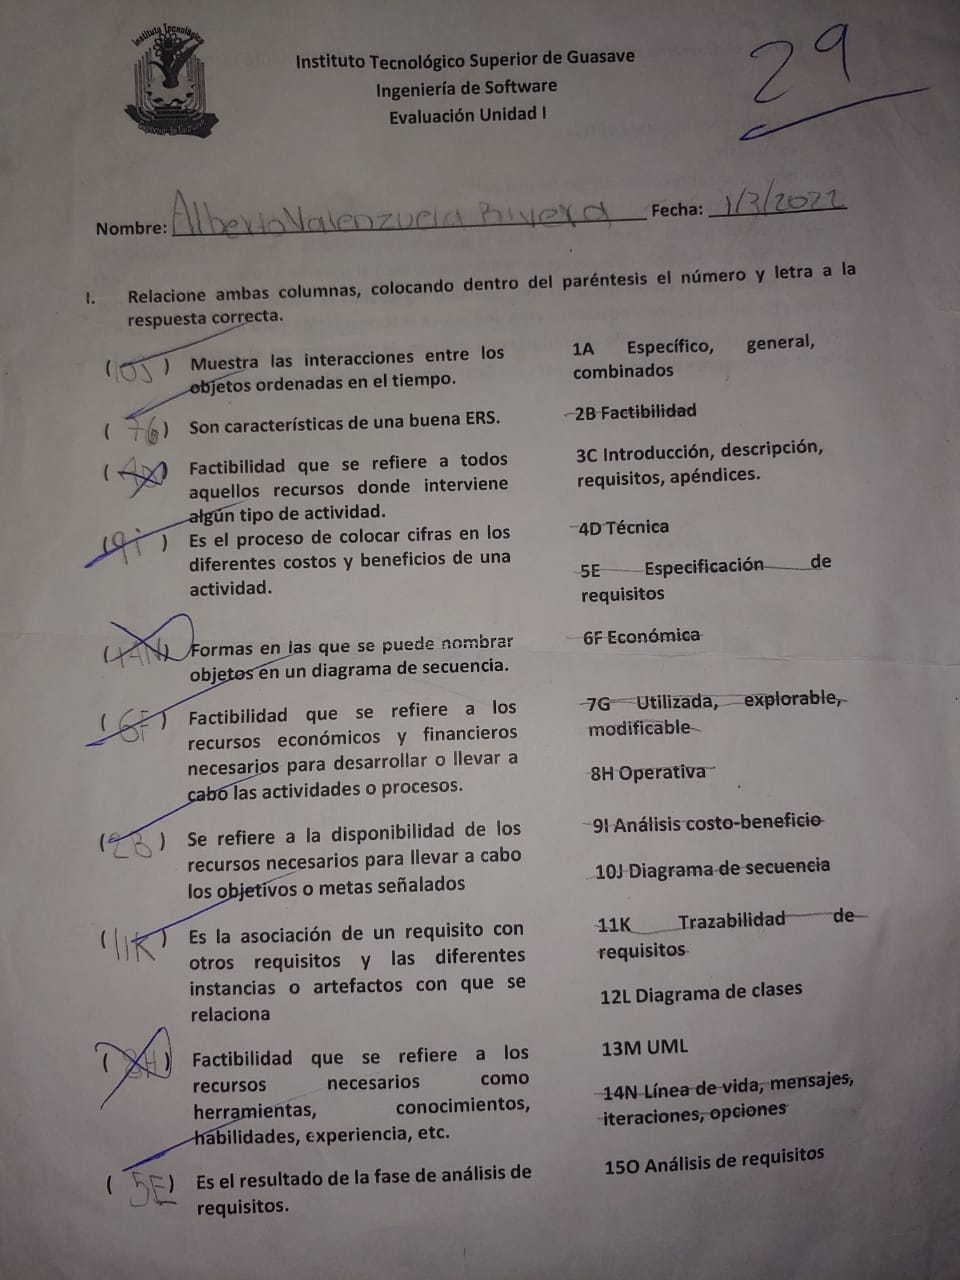 Instituto Tecnológico
Superior de Guasave
Instituto Tecnológico Superior de Guasave
Ingeniería de Software
Evaluación Unidad I
29
Nombre: Alberto Valenzuela Rivera Fecha: 1/3/2022
I. Relacione ambas columnas, colocando dentro del paréntesis el número y letra a la
respuesta correcta.
(10J) Muestra las interacciones entre los
objetos ordenadas en el tiempo.
(7G) Son características de una buena ERS.
(4D) Factibilidad que se refiere a todos
aquellos recursos donde interviene
algún tipo de actividad.
(9i) Es el proceso de colocar cifras en los
diferentes costos y beneficios de una
actividad.
(14N) Formas en las que se puede nombrar
objetos en un diagrama de secuencia.
(6F) Factibilidad que se refiere a los
recursos económicos y financieros
necesarios para desarrollar o llevar a
cabo las actividades o procesos.
(2B) Se refiere a la disponibilidad de los
recursos necesarios para llevar a cabo
los objetivos o metas señalados
(11K) Es la asociación de un requisito con
otros requisitos y las diferentes
instancias o artefactos con que se
relaciona
(8H) Factibilidad que se refiere a los
recursos necesarios como
herramientas, conocimientos,
habilidades, experiencia, etc.
(5E) Es el resultado de la fase de análisis de
requisitos.
1A Específico, general,
combinados
2B Factibilidad
3C Introducción, descripción,
requisitos, apéndices.
4D Técnica
5E Especificación de
requisitos
6F Económica
7G Utilizada, explorable,
modificable
8H Operativa
9I Análisis costo-beneficio
10J Diagrama de secuencia
11K Trazabilidad de
requisitos
12L Diagrama de clases
13M UML
14N Línea de vida, mensajes,
iteraciones, opciones
15O Análisis de requisitos